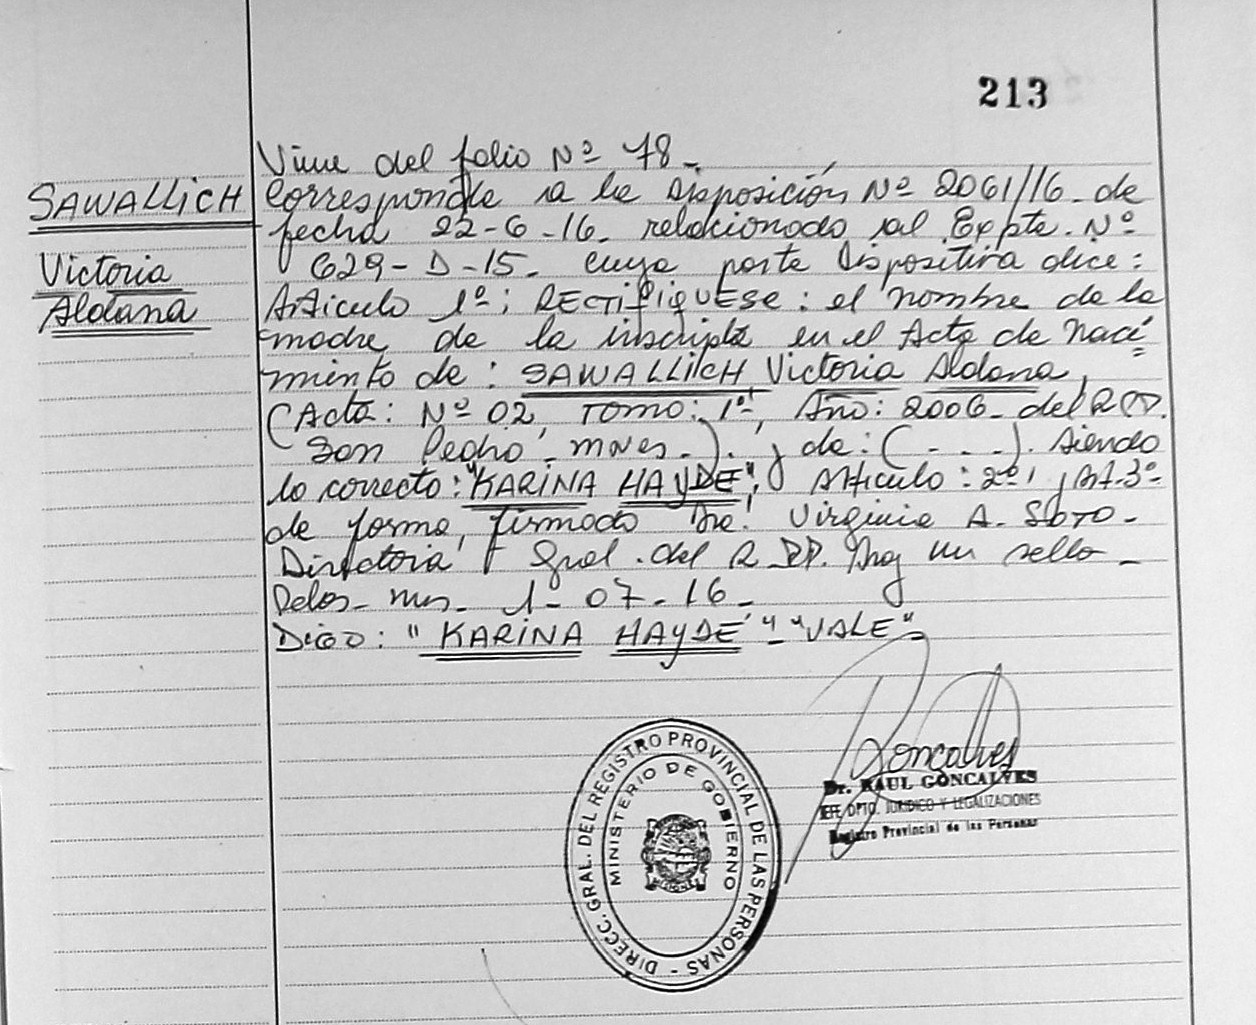 213
Viene del folio Nº 78_
SAWALLICH
Victoria
Aldana
Corresponde a la Disposición Nº 2061/16_ de
fecha 22-6-16_ relacionado al Expte. Nº
629-D-15_ cuya parte Dispositiva dice:
Artículo 1º: RECTIFIQUESE: el nombre de la
madre de la inscripta en el Acta de Naci=
miento de: SAWALLICH Victoria Aldana,
(Acta: Nº 02, Tomo: 1º, Año: 2006_ del R.P.P.
San Pedro - Mnes_). y de: (_ . _ . _). Siendo
lo correcto: "KARINA HAYDE", Artículo: 2º, Art. 3º
de forma, firmado Virginia A. SOTO-
Directora Gral. del R.PP. Hay un sello_
Pdas_ Mns_ 1-07-16_
DIGO: "KARINA HAYDÉ"_ "VALE"
Goncalves
Dr. RAUL GONCALVES
JEFE DPTO. JURIDICO Y LEGALIZACIONES
Registro Provincial de las Personas
DIRECC. GRAL. DEL REGISTRO PROVINCIAL DE LAS PERSONAS -
MINISTERIO DE GOBIERNO